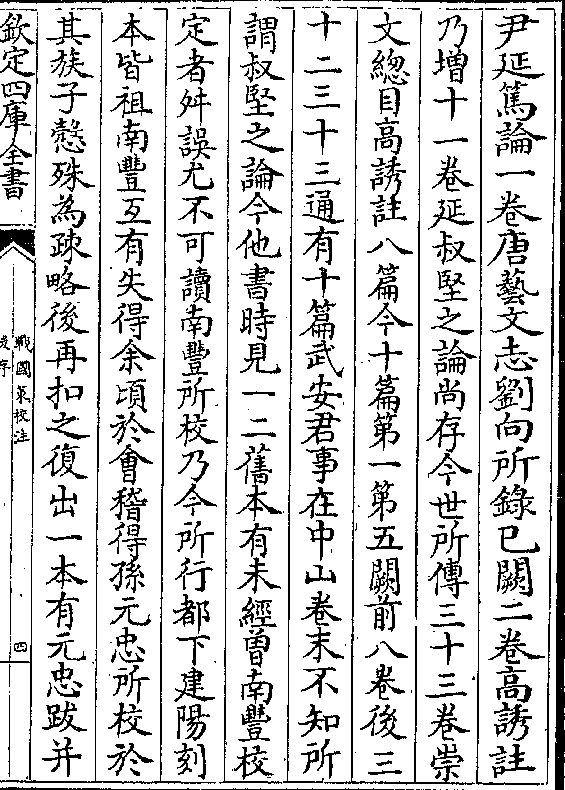 尹延篤論一卷唐藝文志劉向所錄已闕二卷高誘註
乃增十一卷延叔堅之論尚存今世所傳三十三卷崇
文總目高誘註八篇今十篇第一第五闕前八卷後三
十二三十三通有十篇武安君事在中山卷末不知所
謂叔堅之論今他書時見一二舊本有未經曽南豐校
定者舛誤尤不可讀南豐所校乃今所行都下建陽刻
本皆祖南豐互有失得余頃於會稽得孫元忠所校於
其族子慤殊為疎略後再扣之復出一本有元忠跋并
欽定四庫全書
戰國策校注
四